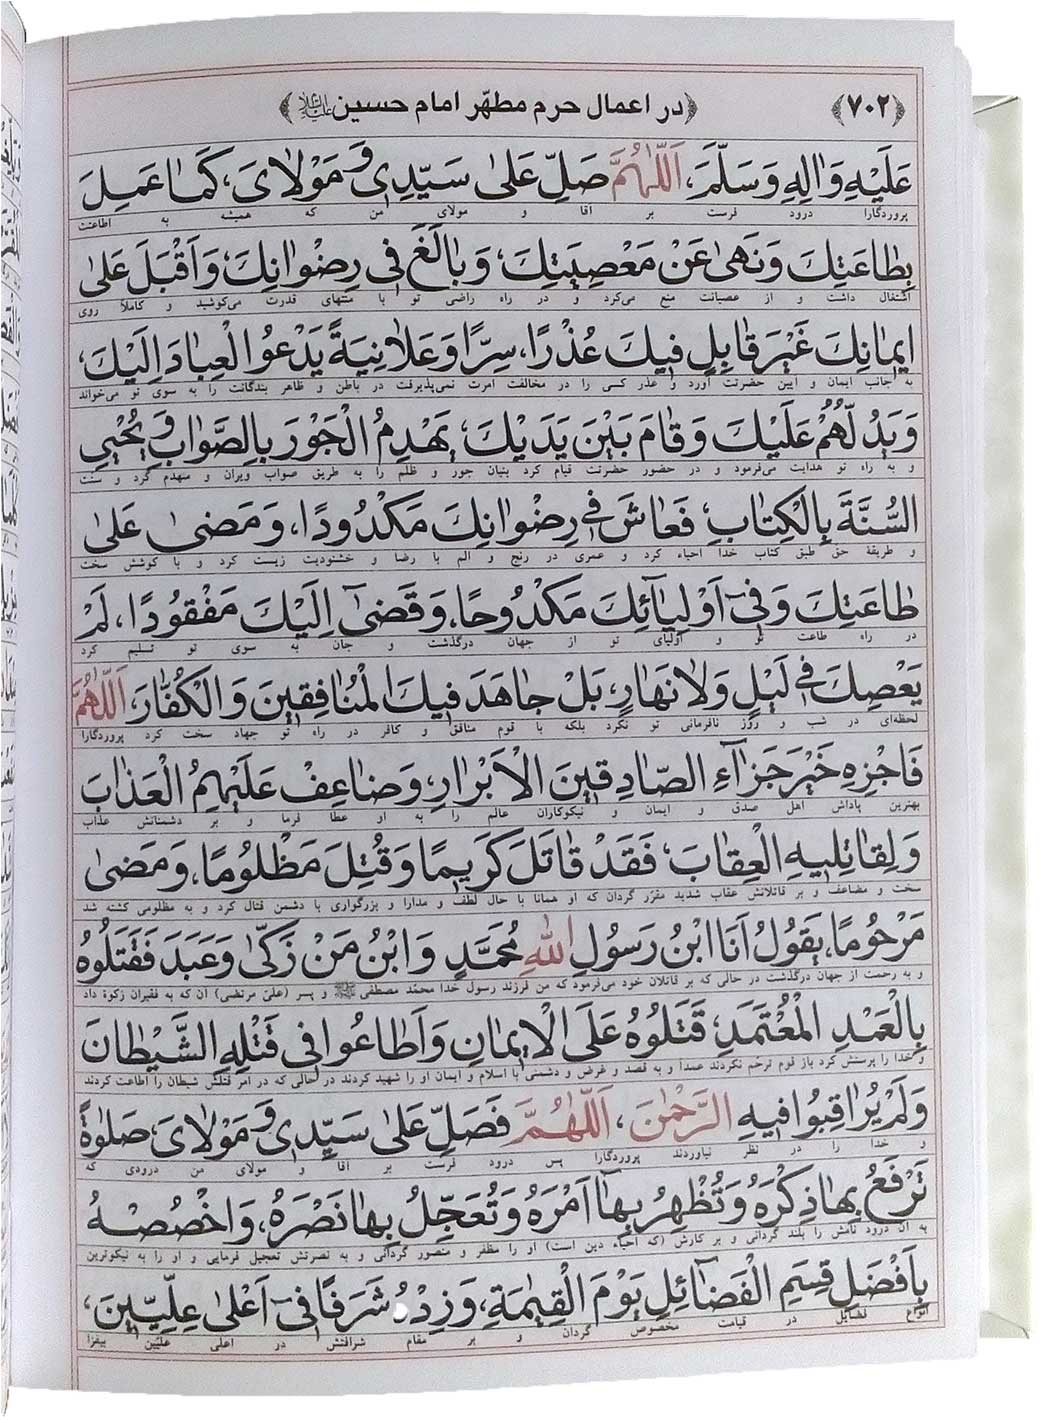 ﴿٧٠٢﴾ ﴿در اعمال حرم مطهّر امام حسین علیه‌السلام﴾
عَلَيْهِ وَالِهِ وَسَلَّمَ، اَللّٰهُمَّ صَلِّ عَلٰى سَيِّدِى وَمَوْلاٰىَ، كَمٰا عَمِلَ
پروردگارا درود فرست بر آقا و مولای من که همیشه به اطاعتت
بِطٰاعَتِكَ وَنَهىٰ عَنْ مَعْصِيَتِكَ، وَبٰالَغَ فى رِضْوٰانِكَ، وَاَقْبَلَ عَلىٰ
اشتغال داشت و از عصیانت منع می‌کرد و در راه راضی تو با منتهای قدرت می‌کوشید و کاملاً روی
ايمٰانِكَ غَيْرَ قٰابِلٍ فيكَ عُذْرًا، سِرًّا وَعَلاٰنِيَةً يَدْعُو الْعِبٰادَ اِلَيْكَ،
به جانب ایمان و آیین حضرتت آورد و عذر کسی را در مخالفت امرت نمی‌پذیرفت در باطن و ظاهر بندگانت را به سوی تو می‌خواند
وَيَدُلُّهُمْ عَلَيْكَ وَقٰامَ بَيْنَ يَدَيْكَ، يَهْدِمُ الْجَوْرَ بِالصَّوٰابِ وَيُحْيِى
و به راه تو هدایت می‌فرمود و در حضور حضرتت قیام کرد بنیان جور و ظلم را به طریق صواب ویران و منهدم کرد و سنت
السُّنَّةَ بِالْكِتٰابِ، فَعٰاشَ فى رِضْوٰانِكَ مَكْدُودًا، وَمَضىٰ عَلىٰ
و طریقهٔ حق طبق کتاب خدا احیاء کرد و عمری در رنج و الم با رضا و خشنودیت زیست کرد و با کوشش سخت
طٰاعَتِكَ وَفى اَوْلِيٰآئِكَ مَكْدُوحًا، وَقَضىٰ اِلَيْكَ مَفْقُودًا، لَمْ
در راه طاعت تو و اولیای تو از جهان درگذشت و جان به سوی تو تسلیم کرد
يَعْصِكَ فى لَيْلٍ وَلاٰنَهٰارٍ، بَلْ جٰاهَدَ فيكَ الْمُنٰافِقينَ وَالْكُفّٰارَ، اَللّٰهُمَّ
لحظه‌ای در شب و روز نافرمانی تو نکرد بلکه با قوم منافق و کافر در راه تو جهاد سخت کرد پروردگارا
فَاجْزِهِ خَيْرَ جَزٰآءِ الصّٰادِقينَ الْاَبْرٰارِ، وَضٰاعِفْ عَلَيْهِمُ الْعَذٰابَ
بهترین پاداش اهل صدق و ایمان و نیکوکاران عالم را به او عطا فرما و بر دشمنانش عذاب
وَلِقٰاتِليهِ الْعِقٰابَ، فَقَدْ قٰاتَلَ كَريمًا وَقُتِلَ مَظْلُومًا، وَمَضىٰ
سخت و مضاعف و بر قاتلانش عقاب شدید مقرّر گردان که او همانا با حال لطف و مدارا و بزرگواری با دشمن قتال کرد و به مظلومی کشته شد
مَرْحُومًا، يَقُولُ اَنَا ابْنُ رَسُولِ اللّٰهِ مُحَمَّدٍ وَابْنُ مَنْ زَكّٰى وَعَبَدَ فَقَتَلُوهُ
و به رحمت از جهان درگذشت در حالی که بر قاتلان خود می‌فرمود که من فرزند رسول خدا محمّد مصطفی ﷺ و پسر (علیّ مرتضی) آن که به فقیران زکوة داد
بِالْعَمْدِ الْمُعْتَمَدِ، قَتَلُوهُ عَلَى الْايمٰانِ وَاَطٰاعُوا فى قَتْلِهِ الشَّيْطٰانَ
و خدا را پرستش کرد باز قوم ترحّم نکردند عمداً و به قصد و غرض و دشمنی با اسلام و ایمان او را شهید کردند در حالی که در امر قتلش شیطان را اطاعت کردند
وَلَمْ يُرٰاقِبُوا فيهِ الرَّحْمٰنَ، اَللّٰهُمَّ فَصَلِّ عَلىٰ سَيِّدى وَمَوْلاٰىَ، صَلوٰةً
و خدا را در نظر نیاوردند پروردگارا پس درود فرست بر آقا و مولای من درودی که
تَرْفَعُ بِهٰا ذِكْرَهُ وَتُظْهِرُ بِهٰآ اَمْرَهُ وَتُعَجِّلُ بِهٰا نَصْرَهُ، وَاخْصُصْهُ
به آن درود نامش را بلند گردانی و بر کارش (که احیاء دین است) او را مظفر و منصور گردانی و به نصرتش تعجیل فرمایی و او را به نیکوترین
بِاَفْضَلِ قِسَمِ الْفَضٰآئِلِ يَوْمَ الْقِيٰمَةِ، وَزِدْهُ شَرَفًا فى اَعْلىٰ عِلِّيّينَ،
انواع فضایل در قیامت مخصوص گردان و بر مقام شرافتش در اعلی علیّین بیفزا